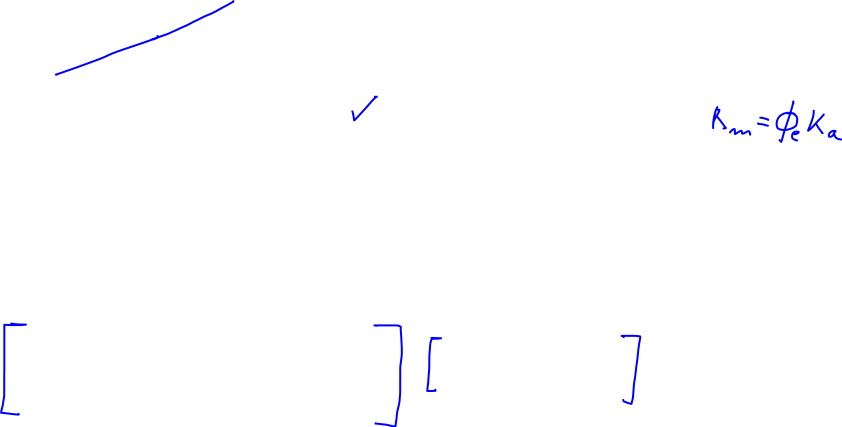 ✓
K_m = ϕ_e K_a
[ ] [ ]